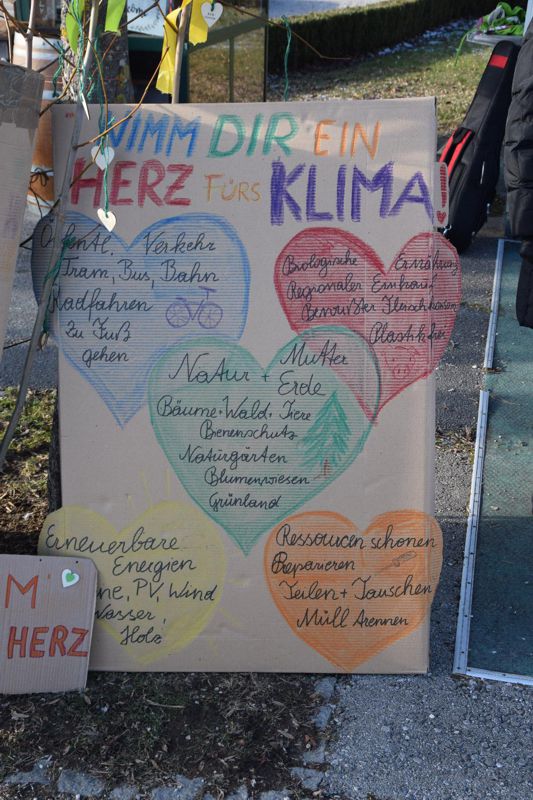 NIMM DIR EIN
HERZ FÜRS KLIMA!
Öffentl. Verkehr
Tram, Bus, Bahn
Radfahren
zu Fuß
gehen
Biologische Ernährung
Regionaler Einkauf
Bewusster Fleischkonsum
Plastikfrei
Natur + Mutter
Erde
Bäume + Wald + Tiere
Bienenschutz
Naturgärten
Blumenwiesen
Grünland
Erneuerbare
Energien
ne, PV, Wind
Wasser,
Holz
Ressourcen schonen
Reparieren
Teilen + Tauschen
Müll trennen
M
HERZ